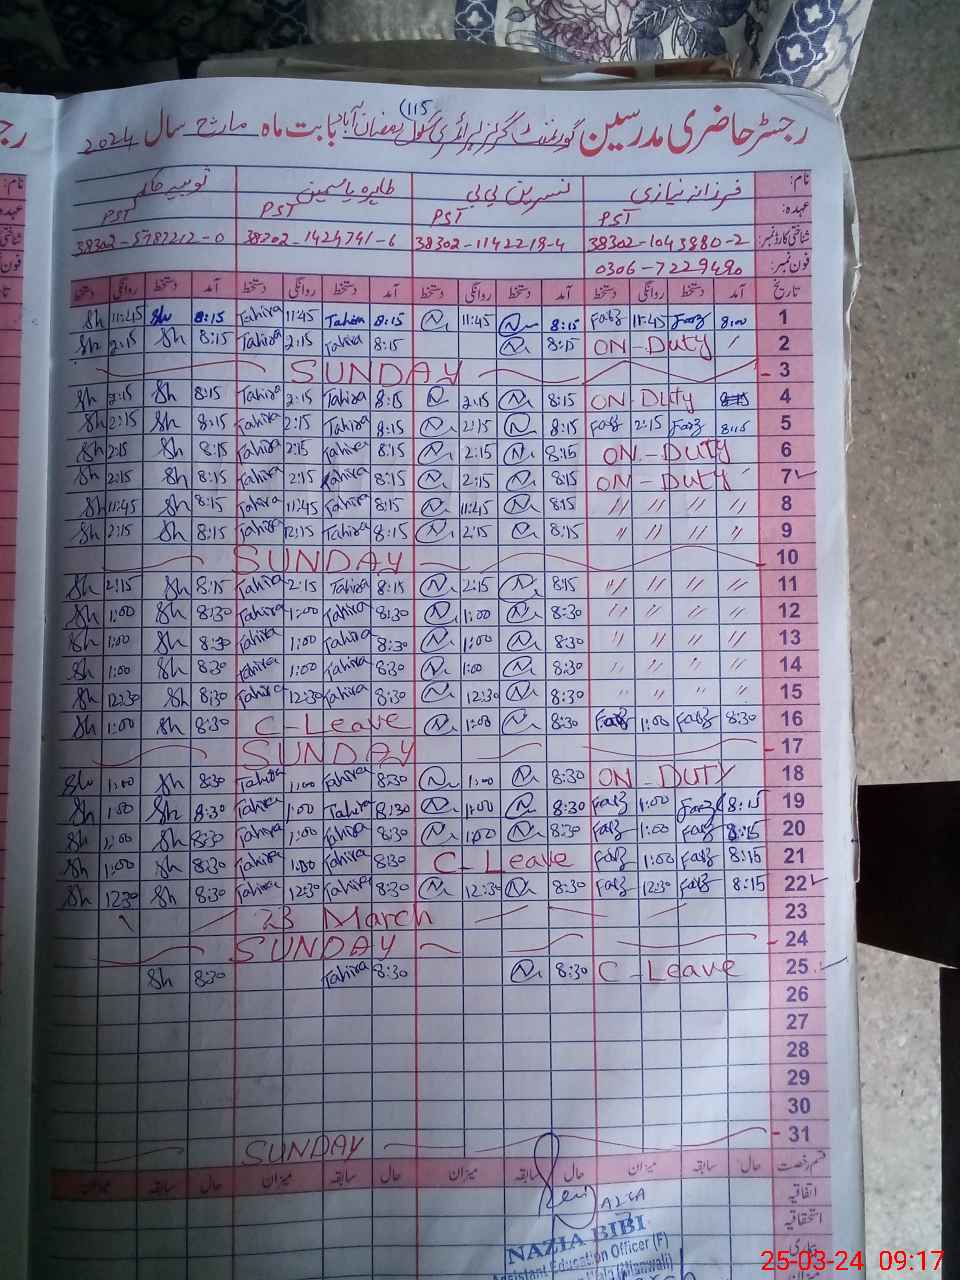 (115
رجسٹر حاضری مدرسین گورنمنٹ گرلز پرائمری سکول رمضان آباد بابت ماہ مارچ سال 2024
نام: فرزانہ نیازی نسرین بی بی طاہرہ یاسمین
عہدہ: PST PST PST PST
شناختی کارڈ نمبر: 38302-1043880-2 38302-1142219-4 38302-1424741-6 38302-5787212-0
فون نمبر: 0306-7229490
تاریخ آمد دستخط روانگی دستخط آمد دستخط روانگی دستخط آمد دستخط روانگی دستخط آمد دستخط روانگی دستخط
1 8:00 Farz 11:45 Farz 8:15 N 11:45 N 8:15 Tahira 11:45 Tahira 8:15 Sh 11:45 Sh
2 ON-Duty 8:15 N 8:15 Tahira 2:15 Tahira 8:15 Sh 2:15 Sh
3 SUNDAY
4 ON-Duty 8:15 N 2:15 N 8:15 Tahira 2:15 Tahira 8:15 Sh 2:15 Sh
5 8:15 Farz 2:15 Farz 8:15 N 2:15 N 8:15 Tahira 2:15 Tahira 8:15 Sh 2:15 Sh
6 ON-DUTY 8:15 N 2:15 N 8:15 Tahira 2:15 Tahira 8:15 Sh 2:15 Sh
7 ON-DUTY 8:15 N 2:15 N 8:15 Tahira 2:15 Tahira 8:15 Sh 2:15 Sh
8 // // // // 8:15 N 11:45 N 8:15 Tahira 11:45 Tahira 8:15 Sh 11:45 Sh
9 // // // // 8:15 N 2:15 N 8:15 Tahira 2:15 Tahira 8:15 Sh 2:15 Sh
10 SUNDAY
11 // // // // 8:15 N 2:15 N 8:15 Tahira 2:15 Tahira 8:15 Sh 2:15 Sh
12 // // // // 8:30 N 1:00 N 8:30 Tahira 1:00 Tahira 8:30 Sh 1:00 Sh
13 // // // // 8:30 N 1:00 N 8:30 Tahira 1:00 Tahira 8:30 Sh 1:00 Sh
14 // // // // 8:30 N 1:00 N 8:30 Tahira 1:00 Tahira 8:30 Sh 1:00 Sh
15 // // // // 8:30 N 12:30 N 8:30 Tahira 12:30 Tahira 8:30 Sh 12:30 Sh
16 8:30 Farz 1:00 Farz 8:30 N 1:00 N C-Leave 8:30 Sh 1:00 Sh
17 SUNDAY
18 ON-DUTY 8:30 N 1:00 N 8:30 Tahira 1:00 Tahira 8:30 Sh 1:00 Sh
19 8:15 Farz 1:00 Farz 8:30 N 1:00 N 8:30 Tahira 1:00 Tahira 8:30 Sh 1:00 Sh
20 8:15 Farz 1:00 Farz 8:30 N 1:00 N 8:30 Tahira 1:00 Tahira 8:30 Sh 1:00 Sh
21 8:15 Farz 1:00 Farz C-Leave 8:30 Tahira 1:00 Tahira 8:30 Sh 1:00 Sh
22 8:15 Farz 12:30 Farz 8:30 N 12:30 N 8:30 Tahira 12:30 Tahira 8:30 Sh 12:30 Sh
23 23 March
24 SUNDAY
25 C-Leave 8:30 N 8:30 Tahira 8:30 Sh
26
27
28
29
30
31 SUNDAY
قسم رخصت حال سابقہ میزان حال سابقہ میزان حال سابقہ میزان حال سابقہ میزان
اتفاقیہ
استحقاقیہ
NAZIA BIBI
Assistant Education Officer (F)
(Mianwali)
25-03-24 09:17